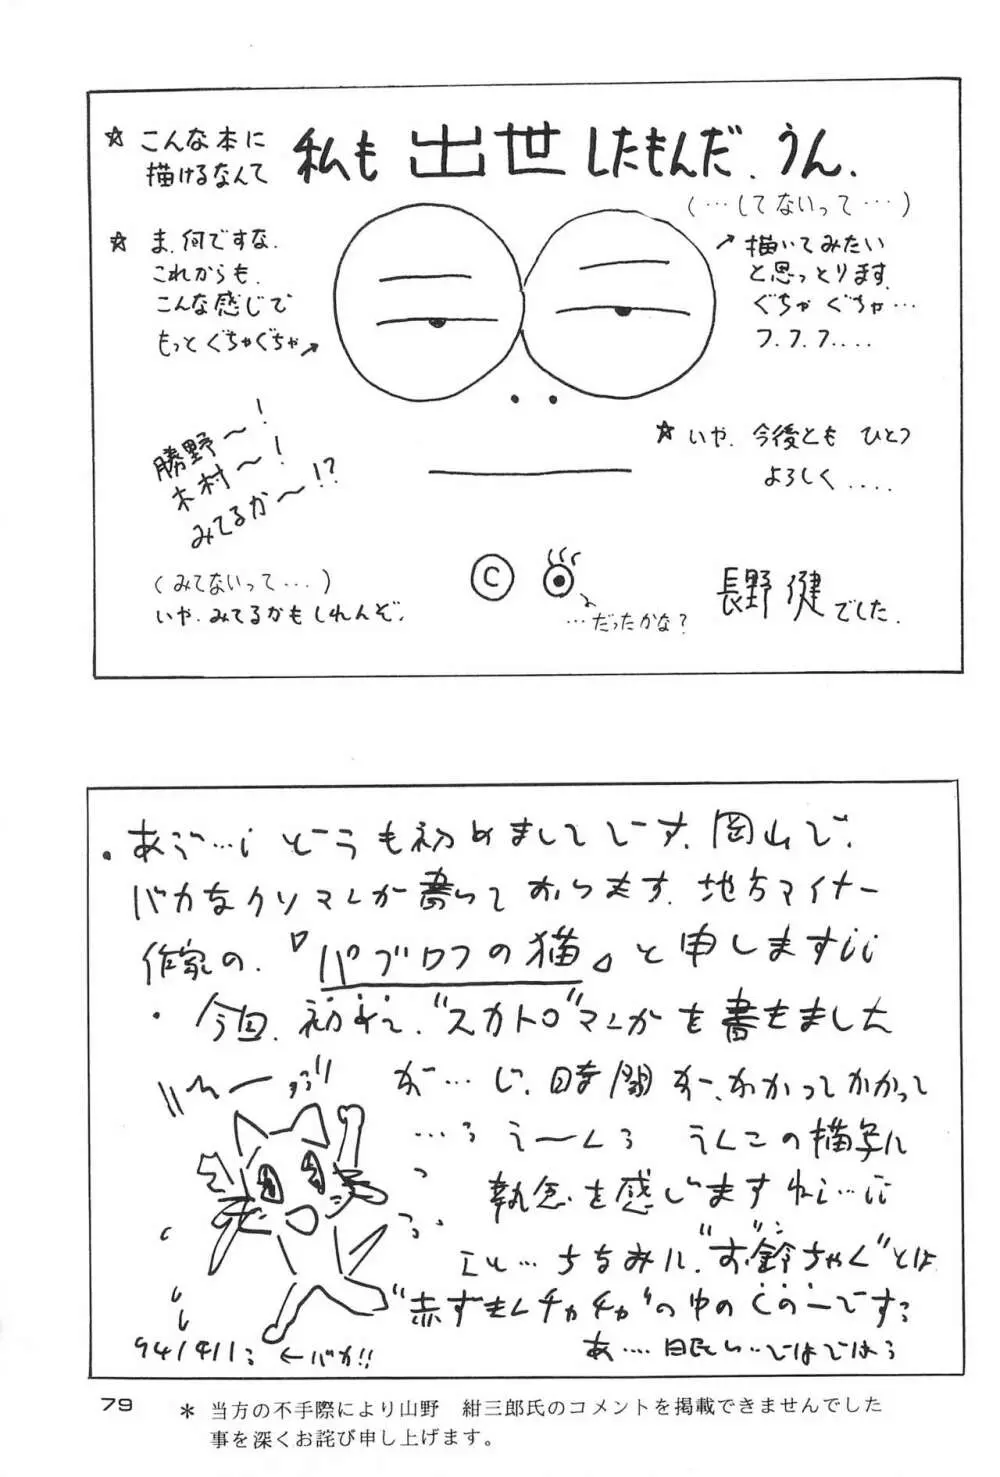 ☆ こんな本に
描けるなんて
私も 出世 したもんだ. うん.
(…してないって…)
☆ ま、何ですな.
これからも.
こんな感じで
もっと ぐちゃぐちゃ↗
↗描いてみたい
と思っとります.
ぐちゃ ぐちゃ…
フ.フ.フ....
勝野〜!
木村〜!
みてるか〜!?
☆ いや. 今後とも ひとつ
よろしく ....
(みてないって...)
いや. みてるかもしれんぞ.
©
…だったかな?
長野 健 でした.
・あう…¡ どうも初めましてです. 岡山で.
バカなクソマンガ書いております. 地方マイナー
作家の.『パブロフの猫』と申します¡¡
・今回. 初めて."スカトロ"マンガを書きました
が…し. 時間がー. かかってかかって
うんこの描写に
執念を感じますね¡…¡¡
えと…ちなみに."お鈴ちゃん"とは
"赤ずきんチャチャ"の中の
です
941411
←バカ!!
あ.... 眠い..ではでは
79
* 当方の不手際により山野 紺三郎氏のコメントを掲載できませんでした
事を深くお詫び申し上げます。